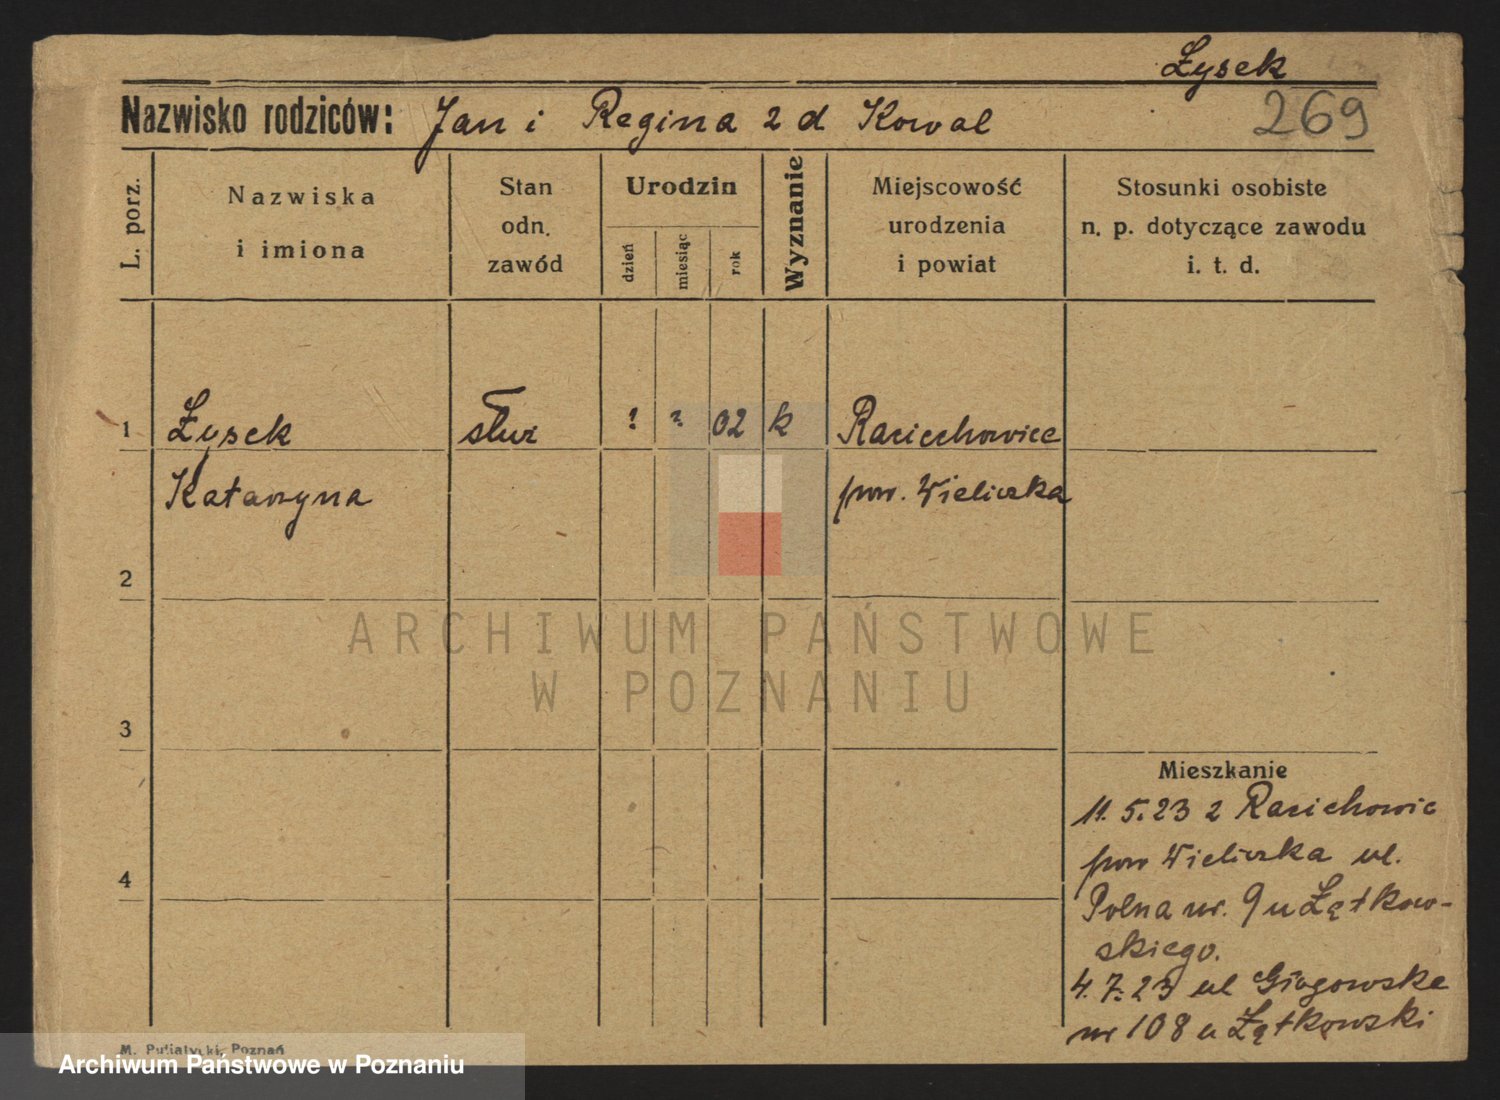 Łysek
Nazwisko rodziców: Jan i Regina z d Kowal
269
L. porz.
Nazwiska
i imiona
Stan
odn.
zawód
Urodzin
dzień
miesiąc
rok
Wyznanie
Miejscowość
urodzenia
i powiat
Stosunki osobiste
n. p. dotyczące zawodu
i. t. d.
1 Łysek służ ? ? 02 k Raciechowice
Katarzyna pow. Wieliczka
2
ARCHIWUM PAŃSTWOWE
W POZNANIU
3
Mieszkanie
11.5.23 z Raciechowic
pow Wieliczka ul.
4
Polna nr. 9 u Łątkow-
skiego.
4.7.23 ul Głogowska
nr 108 u Łątkowski
M. Putiatycki, Poznań
Archiwum Państwowe w Poznaniu